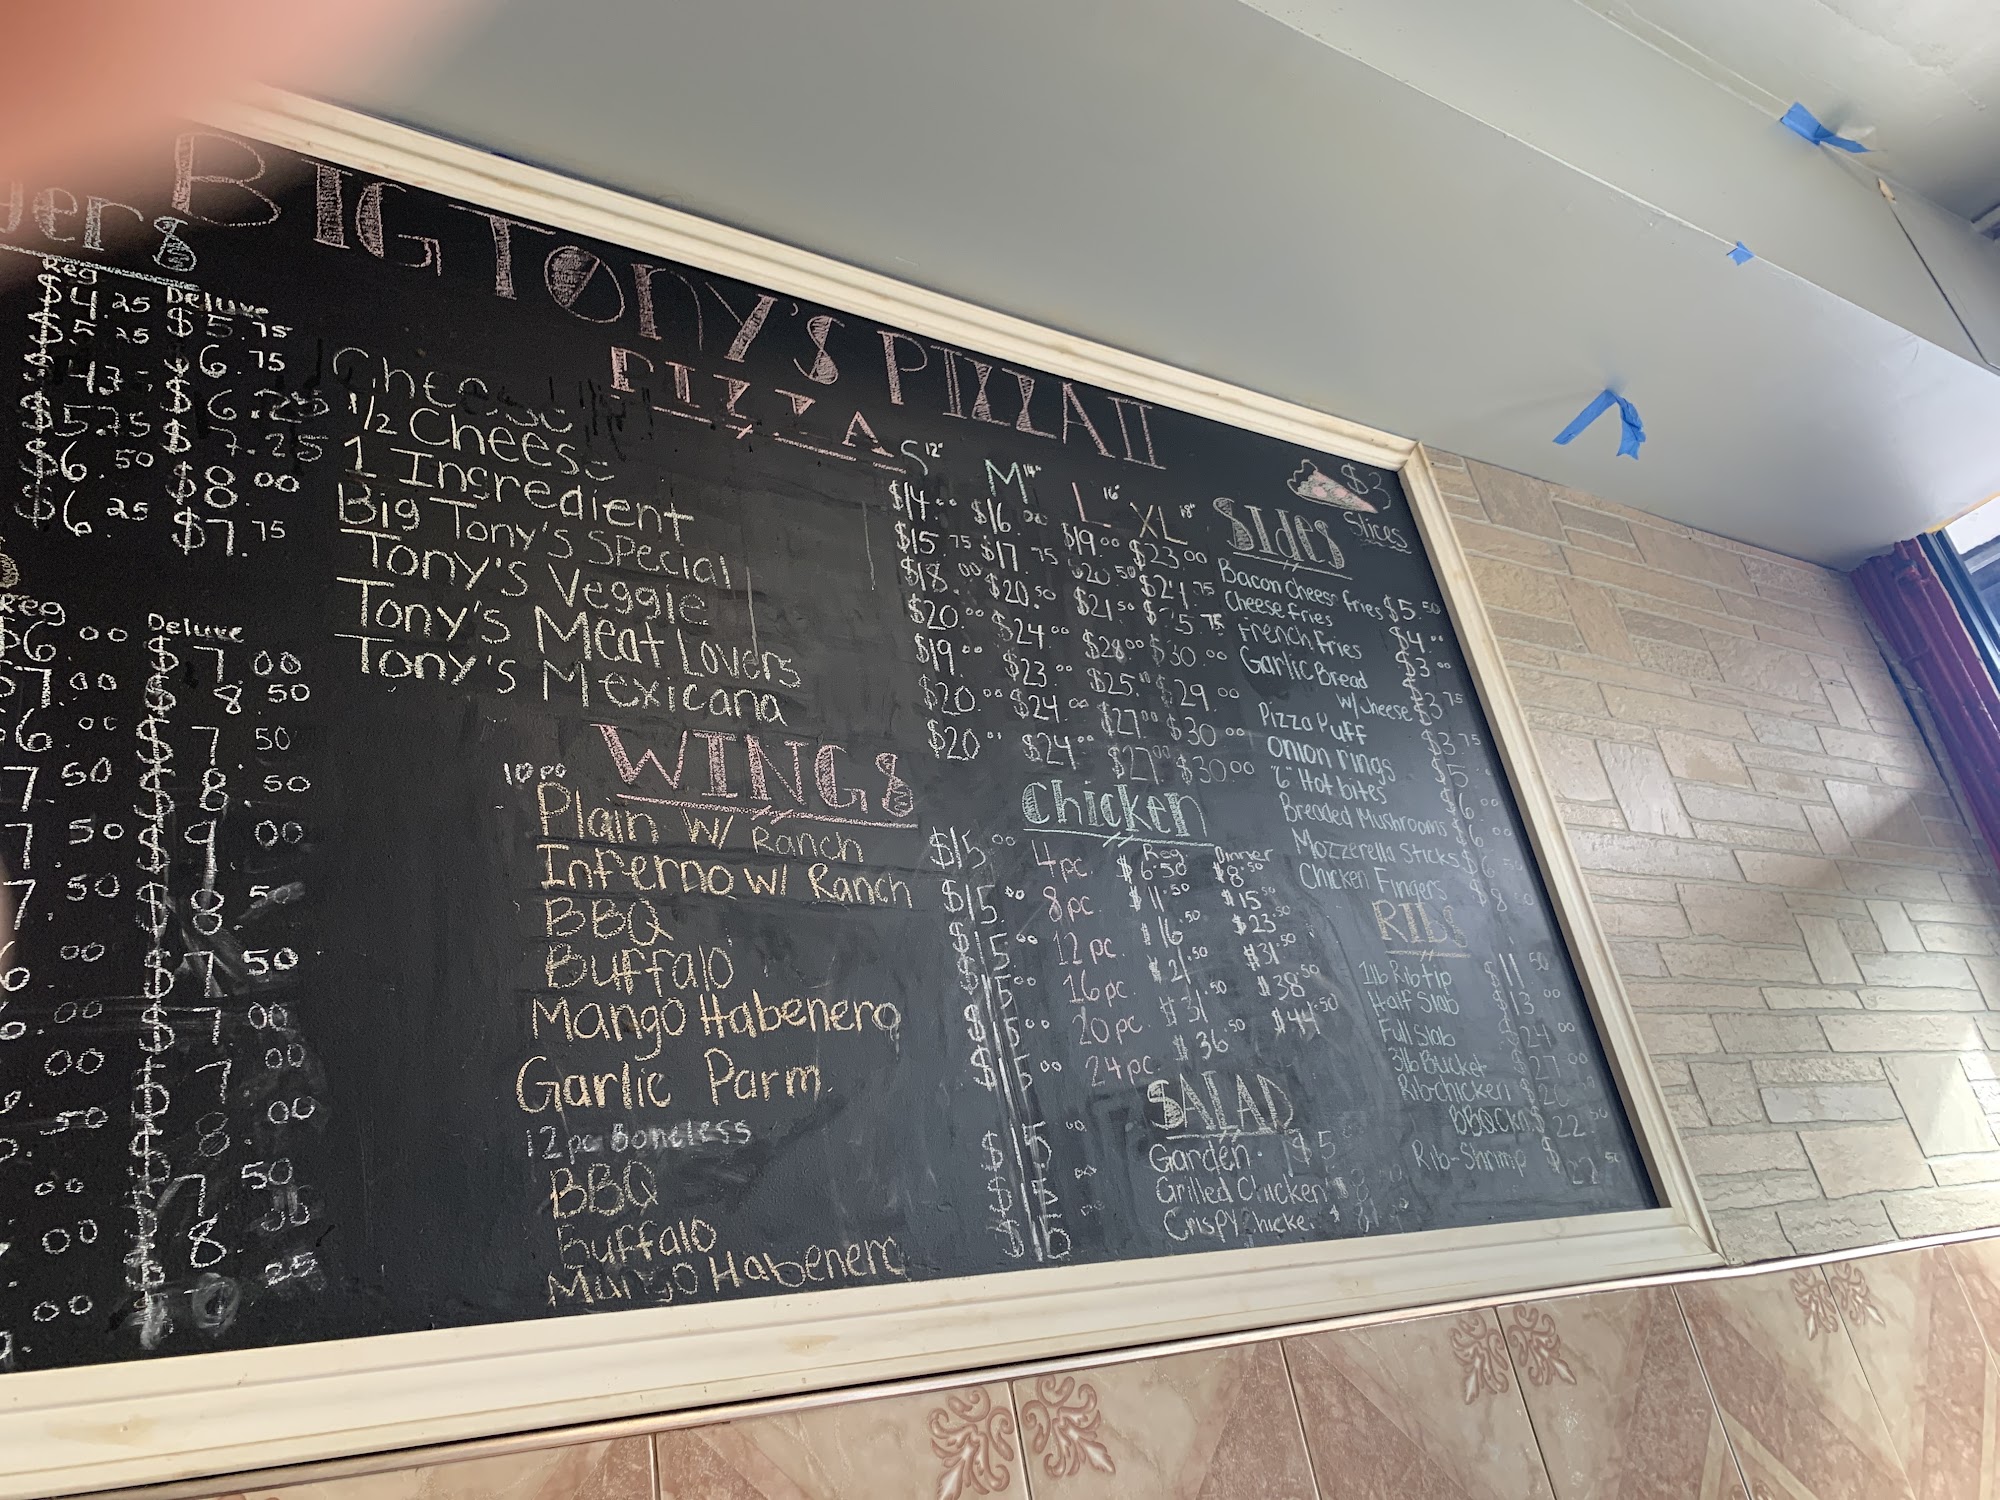 BIG TONY'S PIZZA II
PIZZA
S 12" M 14" L 16" XL 18"
Cheese $14.00 $16.00 $19.00 $23.00
1/2 Cheese $15.75 $17.75 $20.50 $24.75
1 Ingredient $18.00 $20.50 $21.50 $25.75
Big Tony's Special $20.00 $24.00 $28.00 $30.00
Tony's Veggie $19.00 $23.00 $25. $29.00
Tony's Meat Lovers $20.00 $24.00 $27.00 $30.00
Tony's Mexicana $20 $24.00 $27.00 $30.00
WINGS
10 pc
Plain W/ Ranch $15.00
Inferno W/ Ranch $15.00
BBQ $15.00
Buffalo $15
Mango Habenero $15.00
Garlic Parm. $15.00
12pc boneless
BBQ $15.00
Buffalo $15.00
Mango Habenero $15
Chicken
Reg Dinner
4 pc. $6.50 $8.50
8 pc. $11.50 $15.50
12 pc. $16.50 $23.50
16 pc. $21.50 $31.50
20 pc. $31.50 $38.50
24 pc. $36.50 $44.50
SALAD
Garden $5
Grilled Chicken
Crispy Chicke
$3
Slices
Sides
Bacon Cheese fries $5.50
Cheese fries $4.00
French Fries $3.00
Garlic Bread
w/cheese $3.75
Pizza Puff $3.75
Onion rings $5.
6" Hot bites $6.00
Breaded Mushrooms $6.00
Mozzerella Sticks $6.50
Chicken Fingers $8
RIBS
1lb Rib tip $11.50
Half Slab $13.00
Full Slab $24.00
3lb Bucket $27.00
Rib-chicken
BBQ Ckn $22.50
Rib-Shrimp $22.50
Reg Deluxe
$4.25 $5.75
$5.25 $6.75
$4.75 $6.25
$5.75 $7.25
$6.50 $8.00
$6.25 $7.75
Reg Deluxe
$6.00 $7.00
$7.00 $8.50
6.00 $7.50
7.50 $8.50
7.50 $9.00
7.50 $8.50
6.00 $7.50
.00 $7.00
.00 $7.00
.50 $8.00
.00 $7.50
.00 $8.
.00